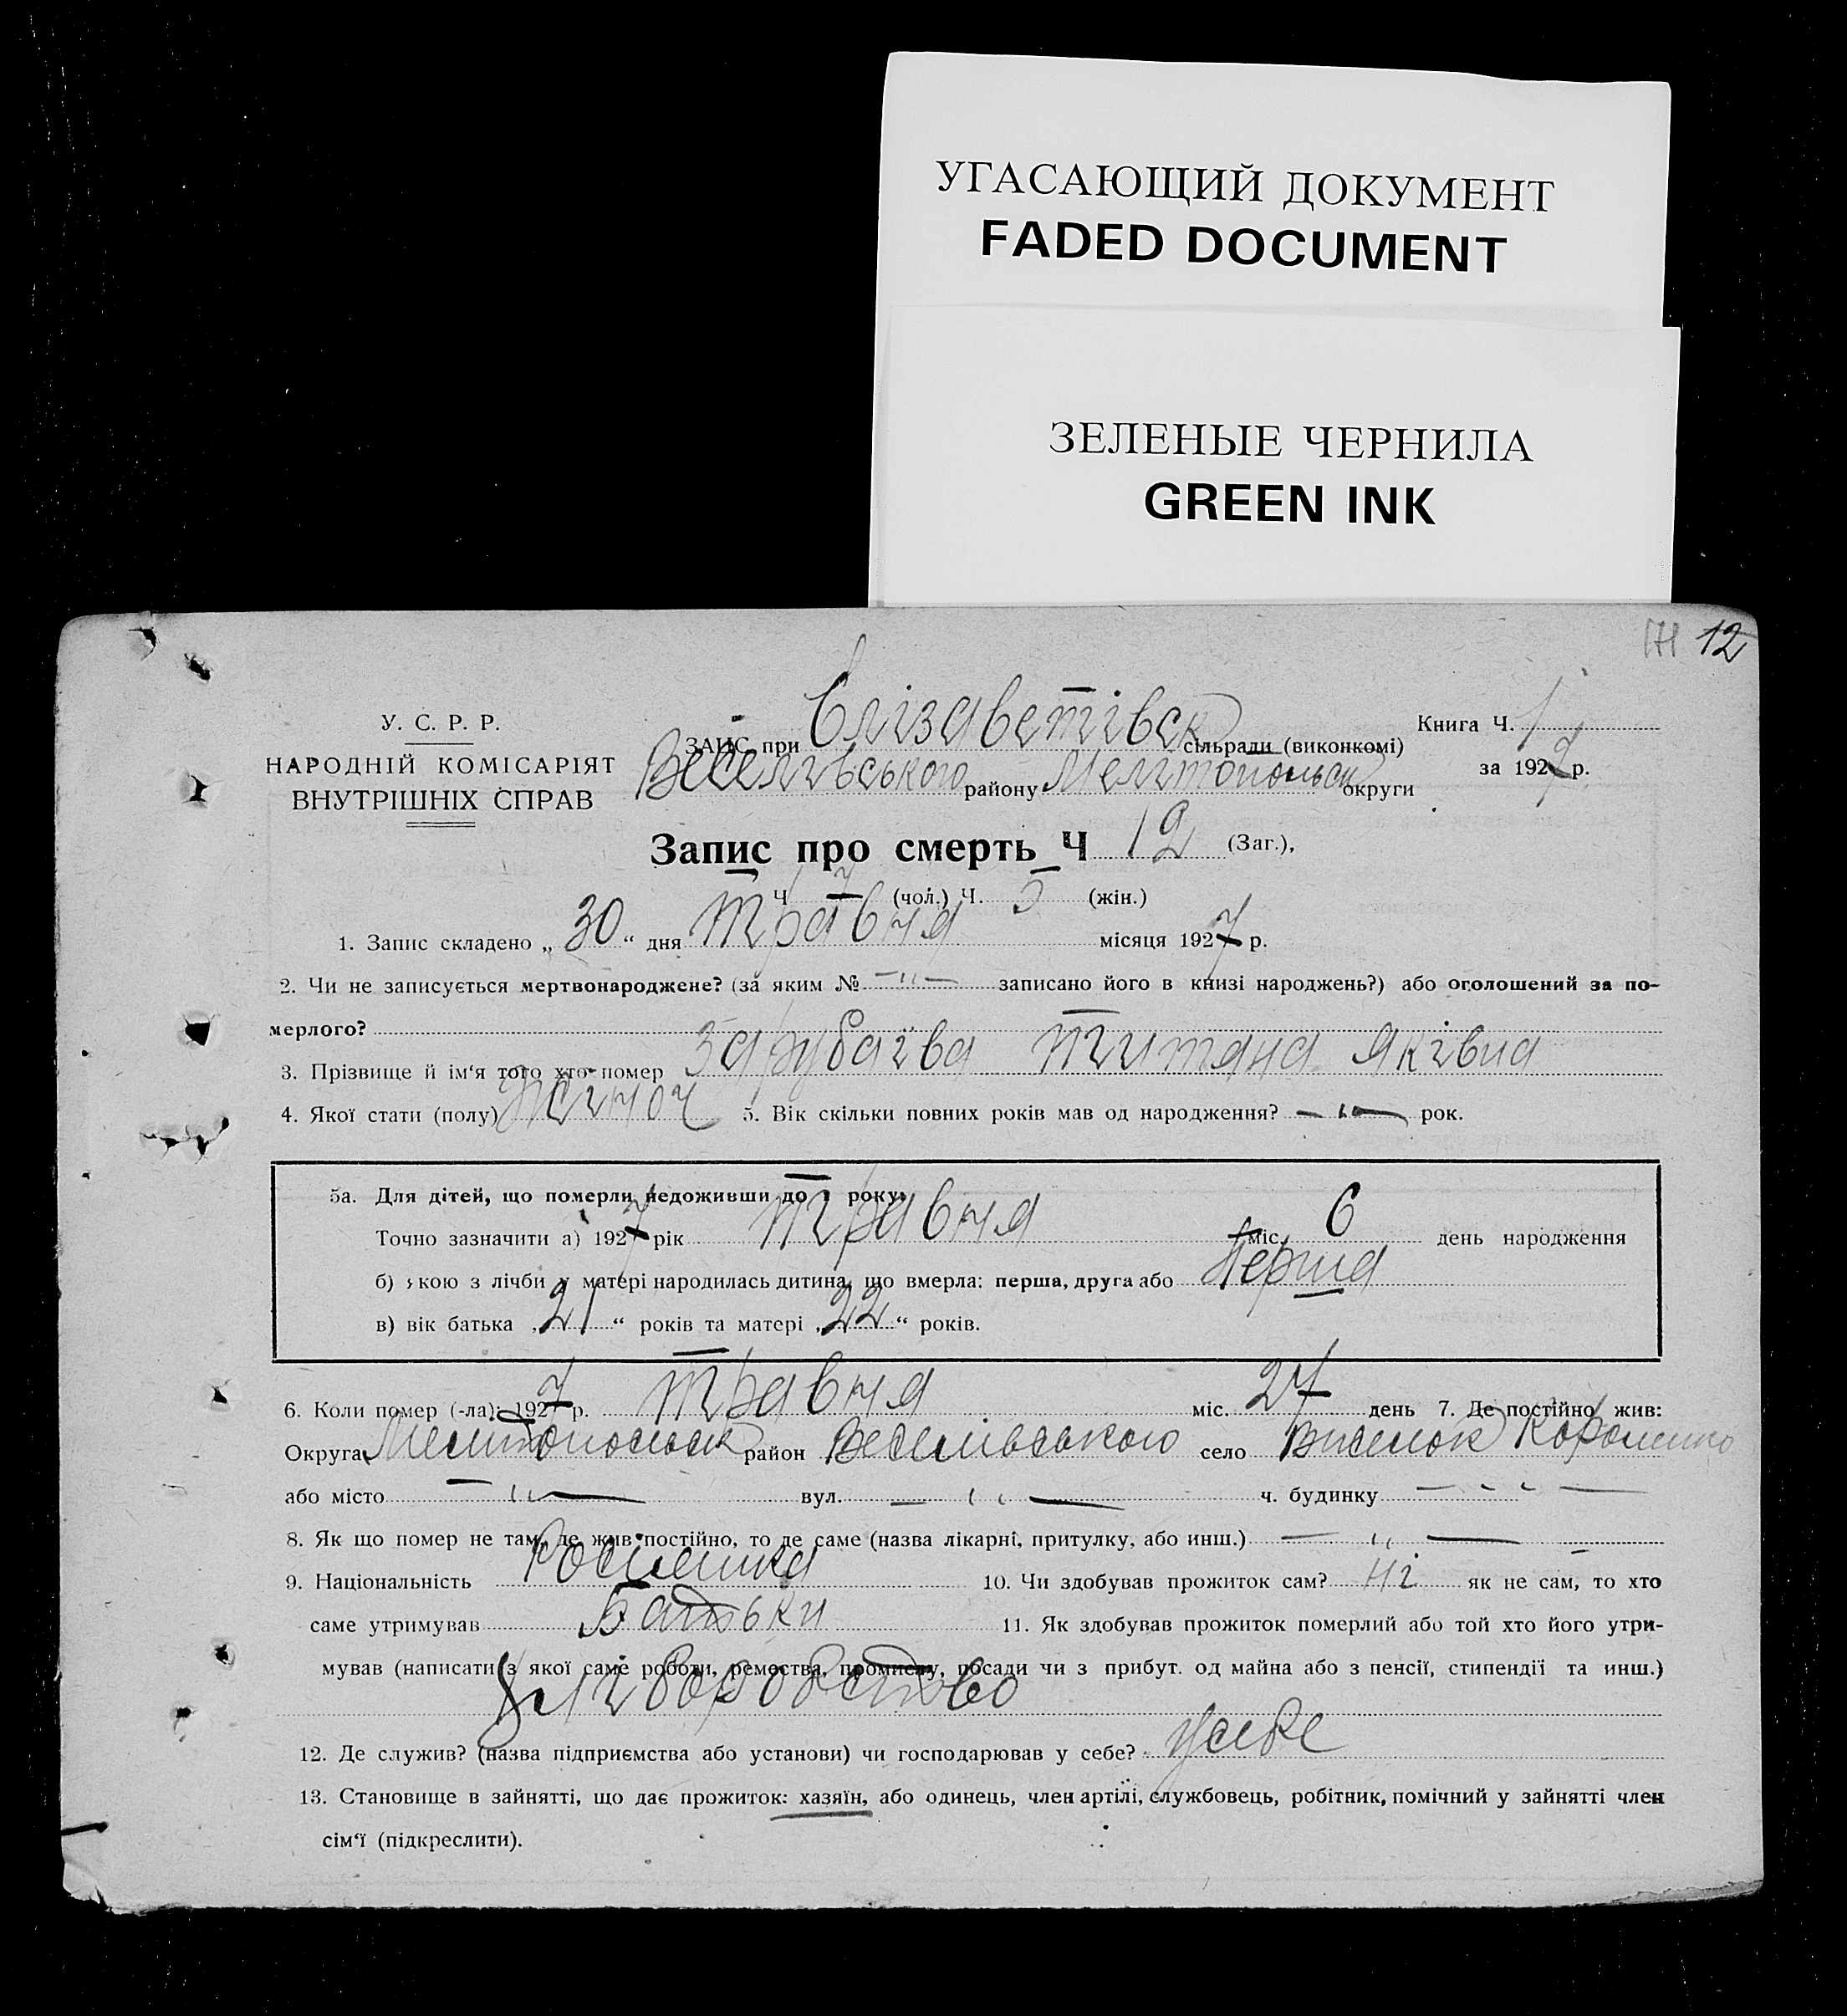 УГАСАЮЩИЙ ДОКУМЕНТ
FADED DOCUMENT
ЗЕЛЕНЫЕ ЧЕРНИЛА
GREEN INK
12
У. С. Р. Р.
НАРОДНІЙ КОМІСАРІЯТ
ВНУТРІШНІХ СПРАВ
ЗАГС при Єлізаветівськ сільради (виконкомі)
Веселівського району Мелітопольськ округи
Книга Ч. 1
за 1927 р.
Запис про смерть Ч 12 (Заг.),
Ч 7 (чол.) Ч. 5 (жін.)
1. Запис складено „ 30 “ дня Травня місяця 1927 р.
2. Чи не записується мертвонароджене? (за яким № —"— записано його в книзі народжень?) або оголошений за по-
мерлого?
3. Прізвище й ім‘я того хто помер Зарубаїва Титяна Яківна
4. Якої стати (полу) Жіноч 5. Вік скільки повних років мав од народження? —"— рок.
5а. Для дітей, що померли недоживши до 1 року:
Точно зазначити а) 1927 рік Травня міс. 6 день народження
б) якою з лічби у матері народилась дитина, що вмерла: перша, друга або Перша
в) вік батька „ 21 “ років та матері „ 22 “ років.
6. Коли помер (-ла): 1927 р. Травня міс. 27 день 7. Де постійно жив:
Округа Мелітопольськ район Веселівського село Виселок Короленко
або місто —"— вул. —"— ч. будинку —"—
8. Як що помер не там, де жив постійно, то де саме (назва лікарні, притулку, або инш.) —"—
9. Національність 10. Чи здобував прожиток сам? Ні як не сам, то хто
саме утримував Батьки 11. Як здобував прожиток померлий або той хто його утри-
мував (написати з якої саме роботи, ремества, промислу, посади чи з прибут. од майна або з пенсії, стипендії та инш.)
Хліборобство
12. Де служив? (назва підприємства або установи) чи господарював у себе? у себе
13. Становище в зайнятті, що дає прожиток: хазяїн, або одинець, член артілі, службовець, робітник, помічний у зайнятті член
сім‘ї (підкреслити).